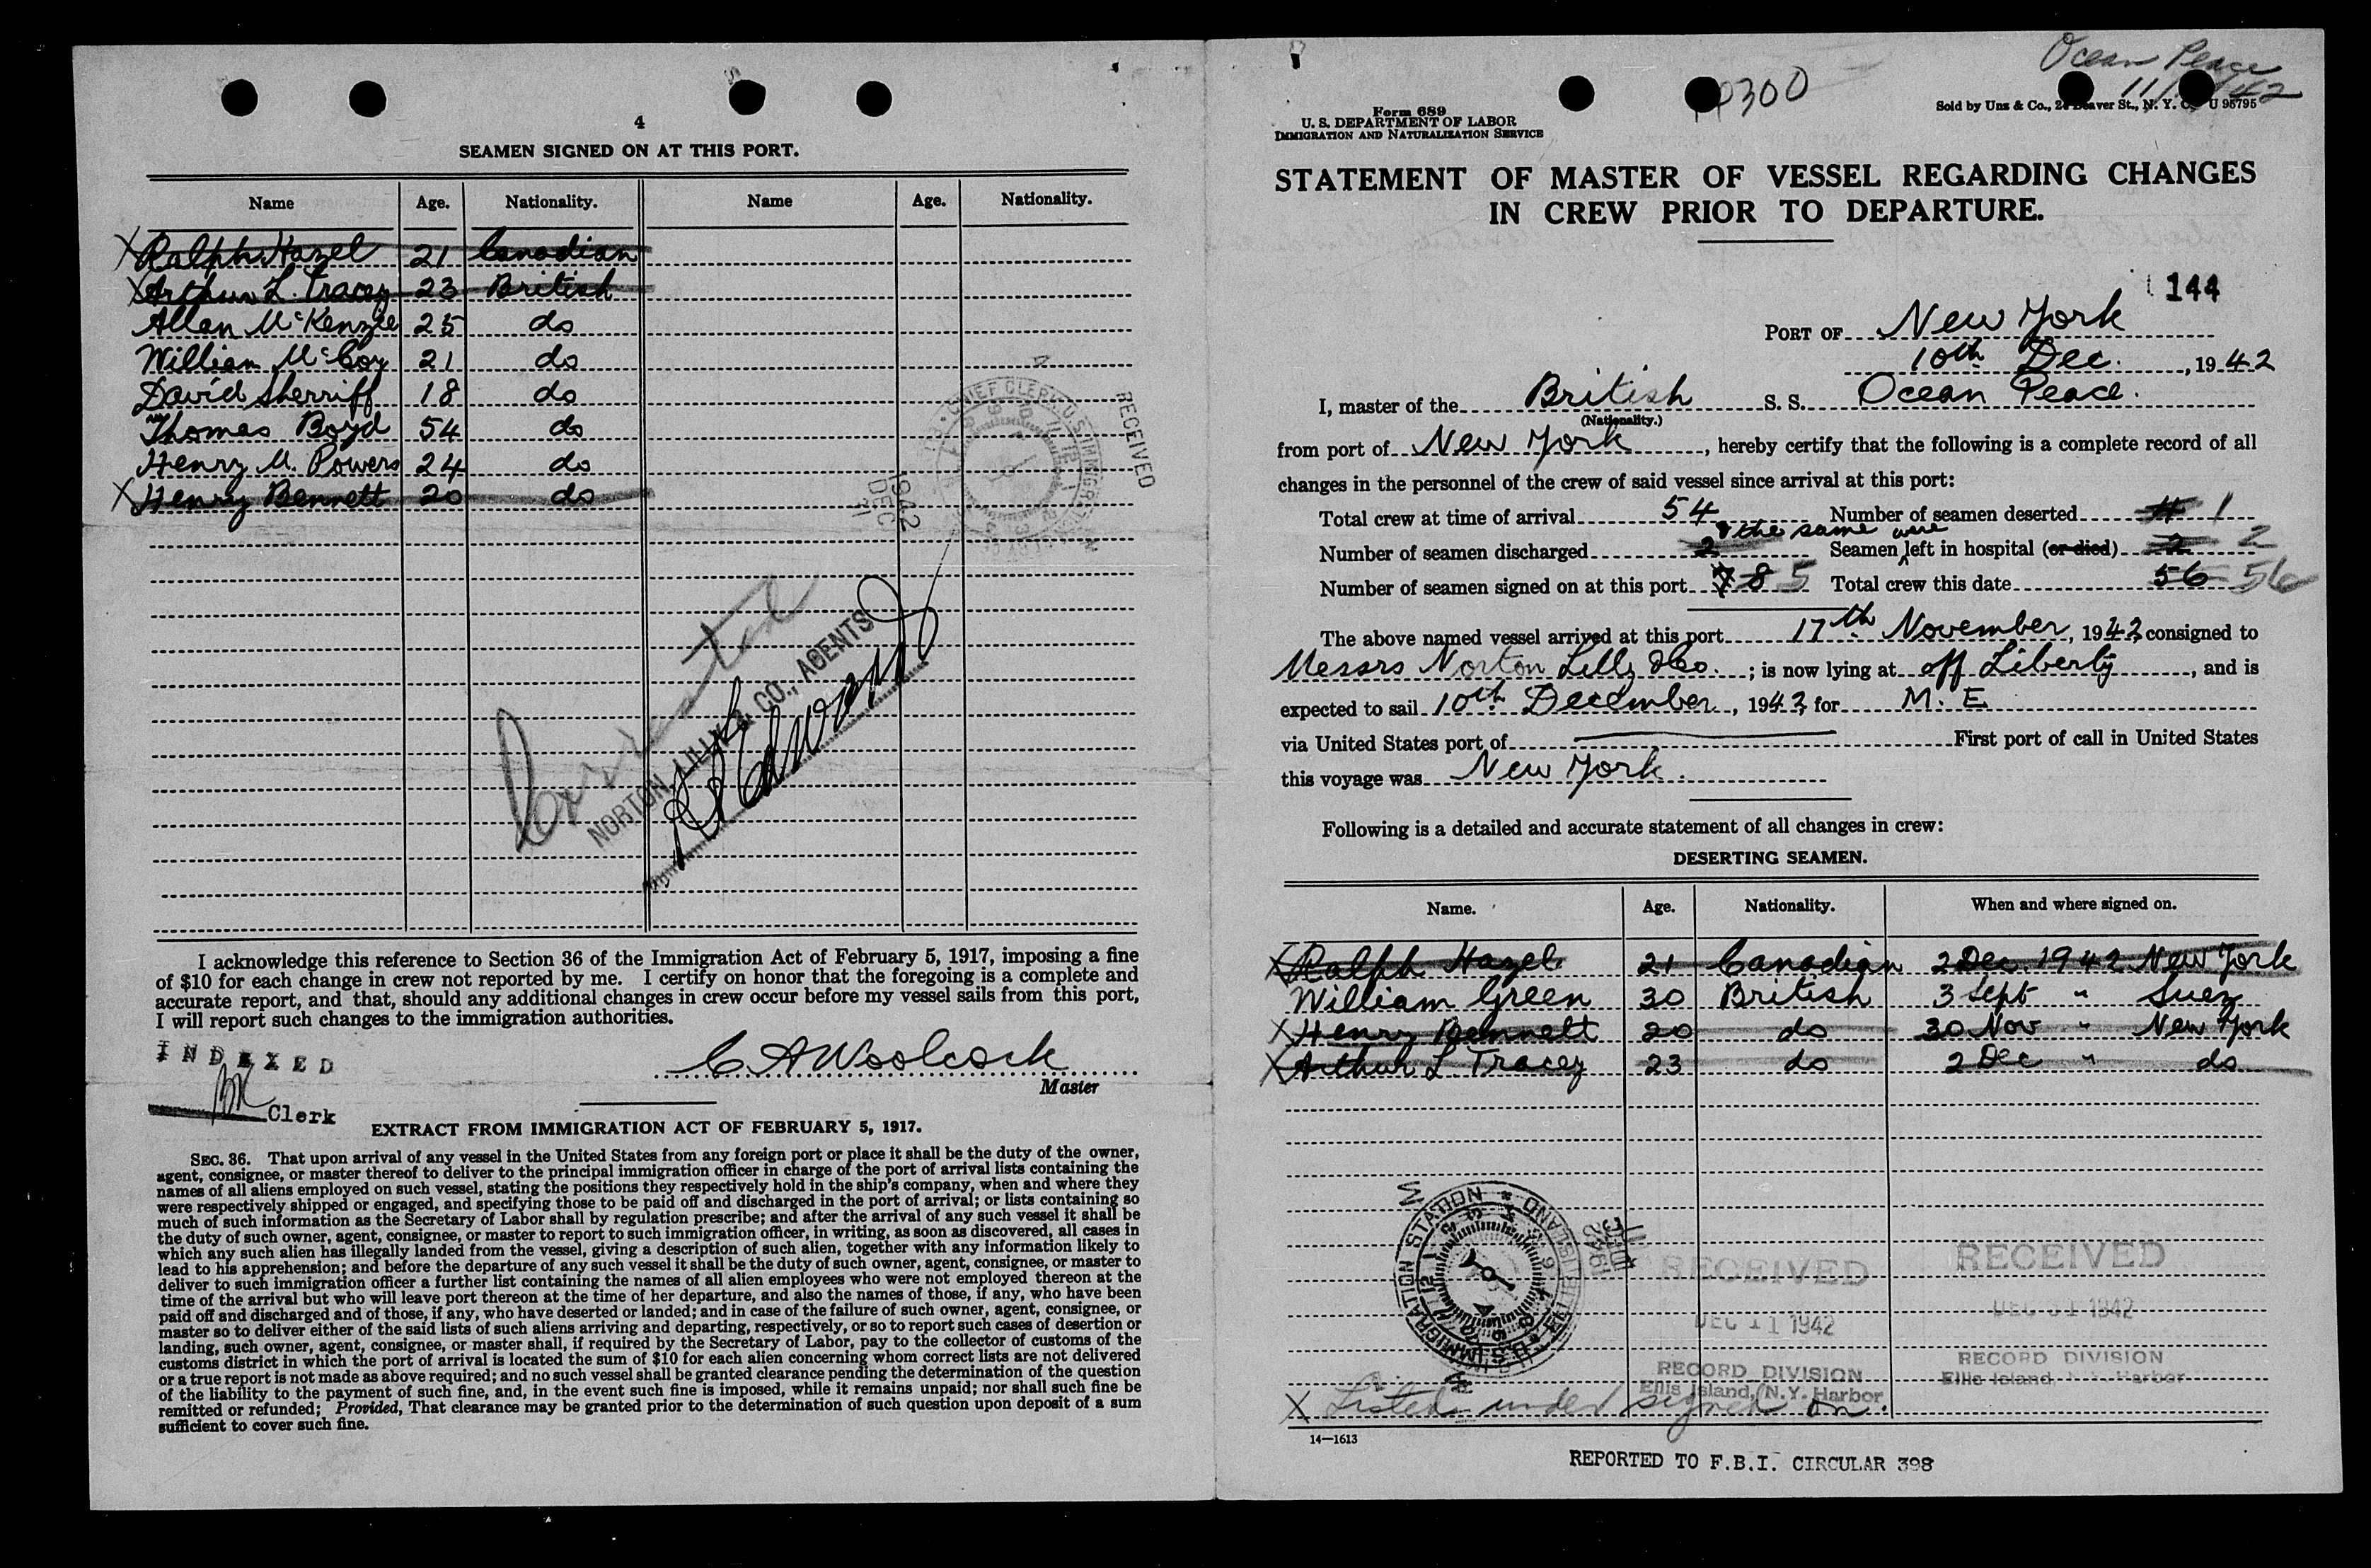 4
SEAMEN SIGNED ON AT THIS PORT.
Name Age. Nationality. Name Age. Nationality.
X Ralph Hazel 21 Canadian
X Arthur L. Tracey 23 British
Allan McKenzie 25 do
William McCoy 21 do
David Sherriff 18 do
Thomas Boyd 54 do
Henry M. Powers 24 do
X Henry Bennett 20 do
RECEIVED
1942
DEC
Corrected
NORTON, LILLY & CO., AGENTS
I acknowledge this reference to Section 36 of the Immigration Act of February 5, 1917, imposing a fine
of $10 for each change in crew not reported by me. I certify on honor that the foregoing is a complete and
accurate report, and that, should any additional changes in crew occur before my vessel sails from this port,
I will report such changes to the immigration authorities.
INDEXED
C A Woolcock
Master
Clerk
EXTRACT FROM IMMIGRATION ACT OF FEBRUARY 5, 1917.
SEC. 36. That upon arrival of any vessel in the United States from any foreign port or place it shall be the duty of the owner,
agent, consignee, or master thereof to deliver to the principal immigration officer in charge of the port of arrival lists containing the
names of all aliens employed on such vessel, stating the positions they respectively hold in the ship's company, when and where they
were respectively shipped or engaged, and specifying those to be paid off and discharged in the port of arrival; or lists containing so
much of such information as the Secretary of Labor shall by regulation prescribe; and after the arrival of any such vessel it shall be
the duty of such owner, agent, consignee, or master to report to such immigration officer, in writing, as soon as discovered, all cases in
which any such alien has illegally landed from the vessel, giving a description of such alien, together with any information likely to
lead to his apprehension; and before the departure of any such vessel it shall be the duty of such owner, agent, consignee, or master to
deliver to such immigration officer a further list containing the names of all alien employees who were not employed thereon at the
time of the arrival but who will leave port thereon at the time of her departure, and also the names of those, if any, who have been
paid off and discharged and of those, if any, who have deserted or landed; and in case of the failure of such owner, agent, consignee, or
master so to deliver either of the said lists of such aliens arriving and departing, respectively, or so to report such cases of desertion or
landing, such owner, agent, consignee, or master shall, if required by the Secretary of Labor, pay to the collector of customs of the
customs district in which the port of arrival is located the sum of $10 for each alien concerning whom correct lists are not delivered
or a true report is not made as above required; and no such vessel shall be granted clearance pending the determination of the question
of the liability to the payment of such fine, and, in the event such fine is imposed, while it remains unpaid; nor shall such fine be
remitted or refunded; Provided, That clearance may be granted prior to the determination of such question upon deposit of a sum
sufficient to cover such fine.
Ocean Peace
Sold by Unz & Co., 24 Beaver St., N. Y. C. U 95795
Form 689
U. S. DEPARTMENT OF LABOR
IMMIGRATION AND NATURALIZATION SERVICE
STATEMENT OF MASTER OF VESSEL REGARDING CHANGES
IN CREW PRIOR TO DEPARTURE.
144
PORT OF New York
10th Dec. , 1942
I, master of the British S. S. Ocean Peace.
(Nationality.)
from port of New York , hereby certify that the following is a complete record of all
changes in the personnel of the crew of said vessel since arrival at this port:
Total crew at time of arrival 54 Number of seamen deserted 4 1
& the same were
Number of seamen discharged 2 Seamen left in hospital (or died) 2 2
Number of seamen signed on at this port 7 8 5 Total crew this date 56 56
The above named vessel arrived at this port 17th November , 1942 consigned to
Messrs Norton Lilly & Co. ; is now lying at off Liberty , and is
expected to sail 10th December , 1942 for M. E.
via United States port of First port of call in United States
this voyage was New York.
Following is a detailed and accurate statement of all changes in crew:
DESERTING SEAMEN.
Name. Age. Nationality. When and where signed on.
X Ralph Hazel 21 Canadian 2 Dec. 1942 New York
William Green 30 British 3 Sept " Suez
X Henry Bennett 20 do 30 Nov " New York
X Arthur L. Tracey 23 do 2 Dec " do
RECEIVED
DEC 11 1942
RECORD DIVISION
Ellis Island, N.Y. Harbor
RECEIVED
DEC 31 1942
RECORD DIVISION
Ellis Island, N.Y. Harbor
X Listed under signed on.
14—1613
REPORTED TO F.B.I. CIRCULAR 398